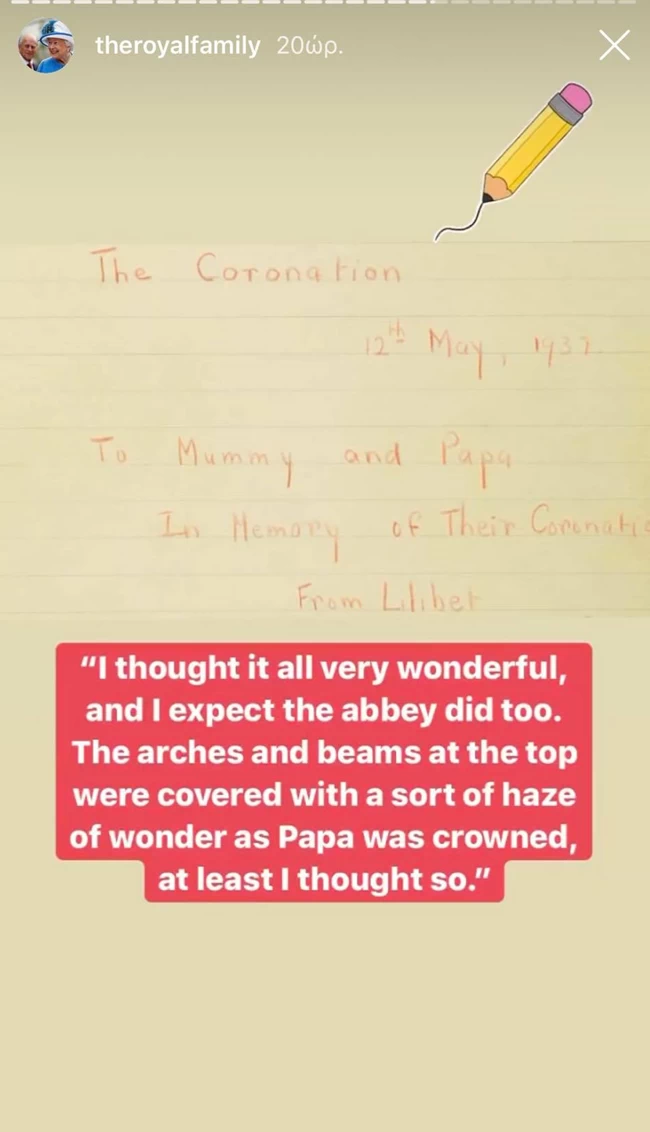 theroyalfamily 20ώρ.
The Coronation
12th May, 1937
To Mummy and Papa
In Memory of Their Coronatio
From Lilibet
“I thought it all very wonderful,
and I expect the abbey did too.
The arches and beams at the top
were covered with a sort of haze
of wonder as Papa was crowned,
at least I thought so.”